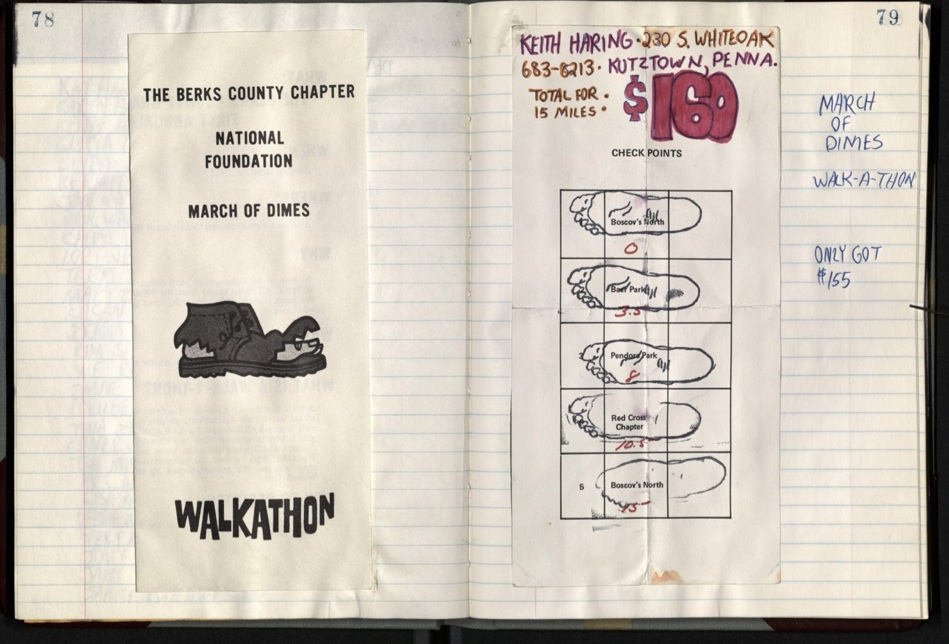 78
THE BERKS COUNTY CHAPTER
NATIONAL
FOUNDATION
MARCH OF DIMES
WALKATHON
79
KEITH HARING · 230 S. WHITEOAK
683-8213 · KUTZTOWN, PENNA.
TOTAL FOR ·
15 MILES ·
$160
CHECK POINTS
Boscov's North
0
Park
3.5
Pendora Park
8
Red Cross
Chapter
10.5
5
Boscov's North
15
MARCH
OF
DIMES
WALK-A-THON
ONLY GOT
$155